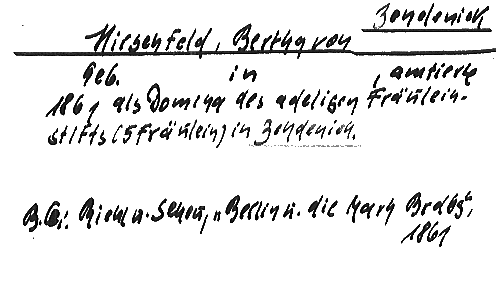 Zehdenick
Hirschfeld, Bertha von
geb. in , amtierte
1861 als Domina des adeligen Fräulein-
stifts (5 Fräulein) in Zehdenick.
B.G.: Riehl u. Scheu, "Berlin u. die Mark Brdbg",
1861